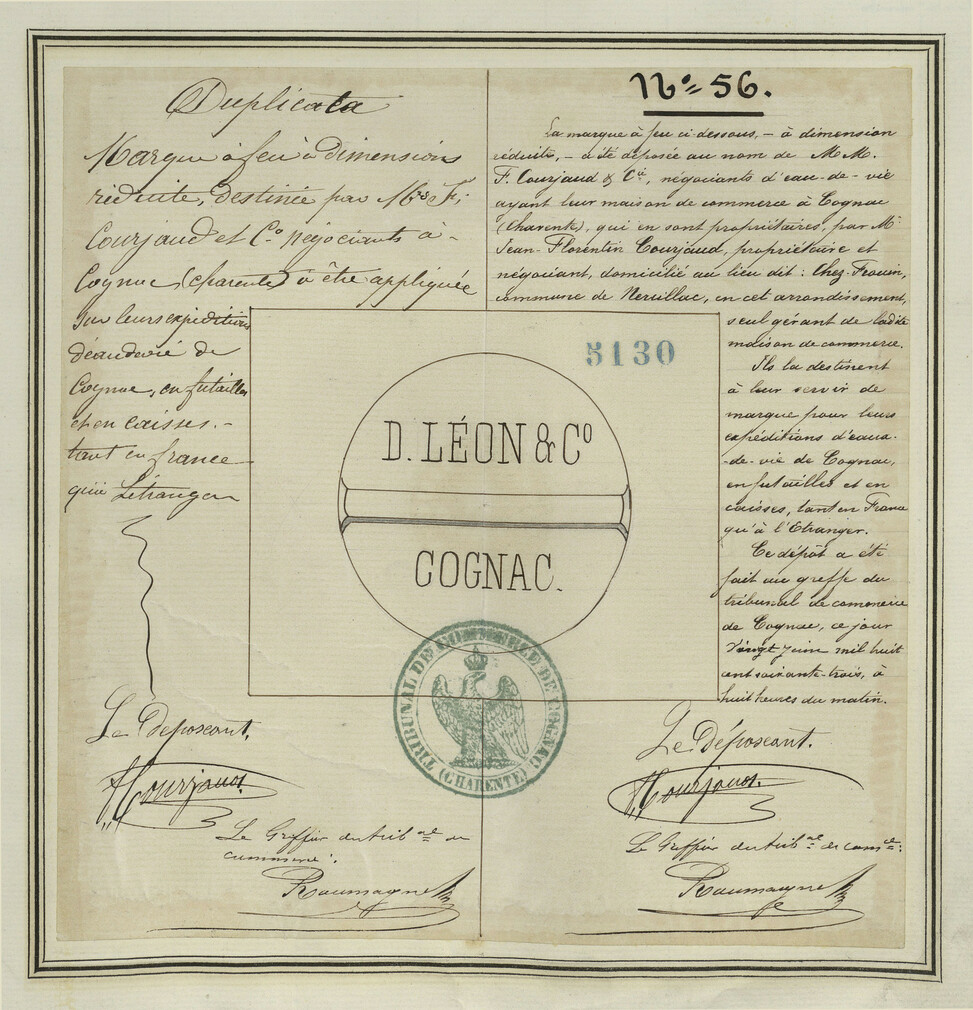 Duplicata
Marque à feu à dimensions
réduite, destinée par Mrs F.
Courjaud et Co négociants à
Cognac (charente) à être appliquée
sur leurs expéditions
d'eau de vie de
Cognac, en futailles
et en caisses. -
tant en france
qu'à L'étranger
Le Déposant,
Courjaud.
Le Greffier du trib al de
commerce.
Roumagne
No 56.
La marque à feu ci-dessous, - à dimension
réduite, - a été déposée au nom de M M.
F. Courjaud & Cie, négociants d'eau-de-vie
ayant leur maison de commerce à Cognac
(Charente), qui en sont propriétaires, par Mr
Jean-Florentin Courjaud, propriétaire et
négociant, domicilié au lieu dit : Chez-Frouin,
commune de Nercillac, en cet arrondissement,
seul gérant de ladite
maison de commerce.
Ils la destinent
à leur servir de
marque pour leurs
expéditions d'eaux-
-de-vie de Cognac,
en futailles et en
caisses, tant en France
qu'à l'Etranger.
Ce dépôt a été
fait au greffe du
tribunal de commerce
de Cognac, ce jour
vingt juin mil huit
cent soixante-trois, à
huit heures du matin.
Le Déposant.
Courjaud.
Le Greffier du trib al de com ce.
Roumagne
5130
D. LÉON & Co
COGNAC.
TRIBUNAL DE COMMERCE DE COGNAC
(CHARENTE)